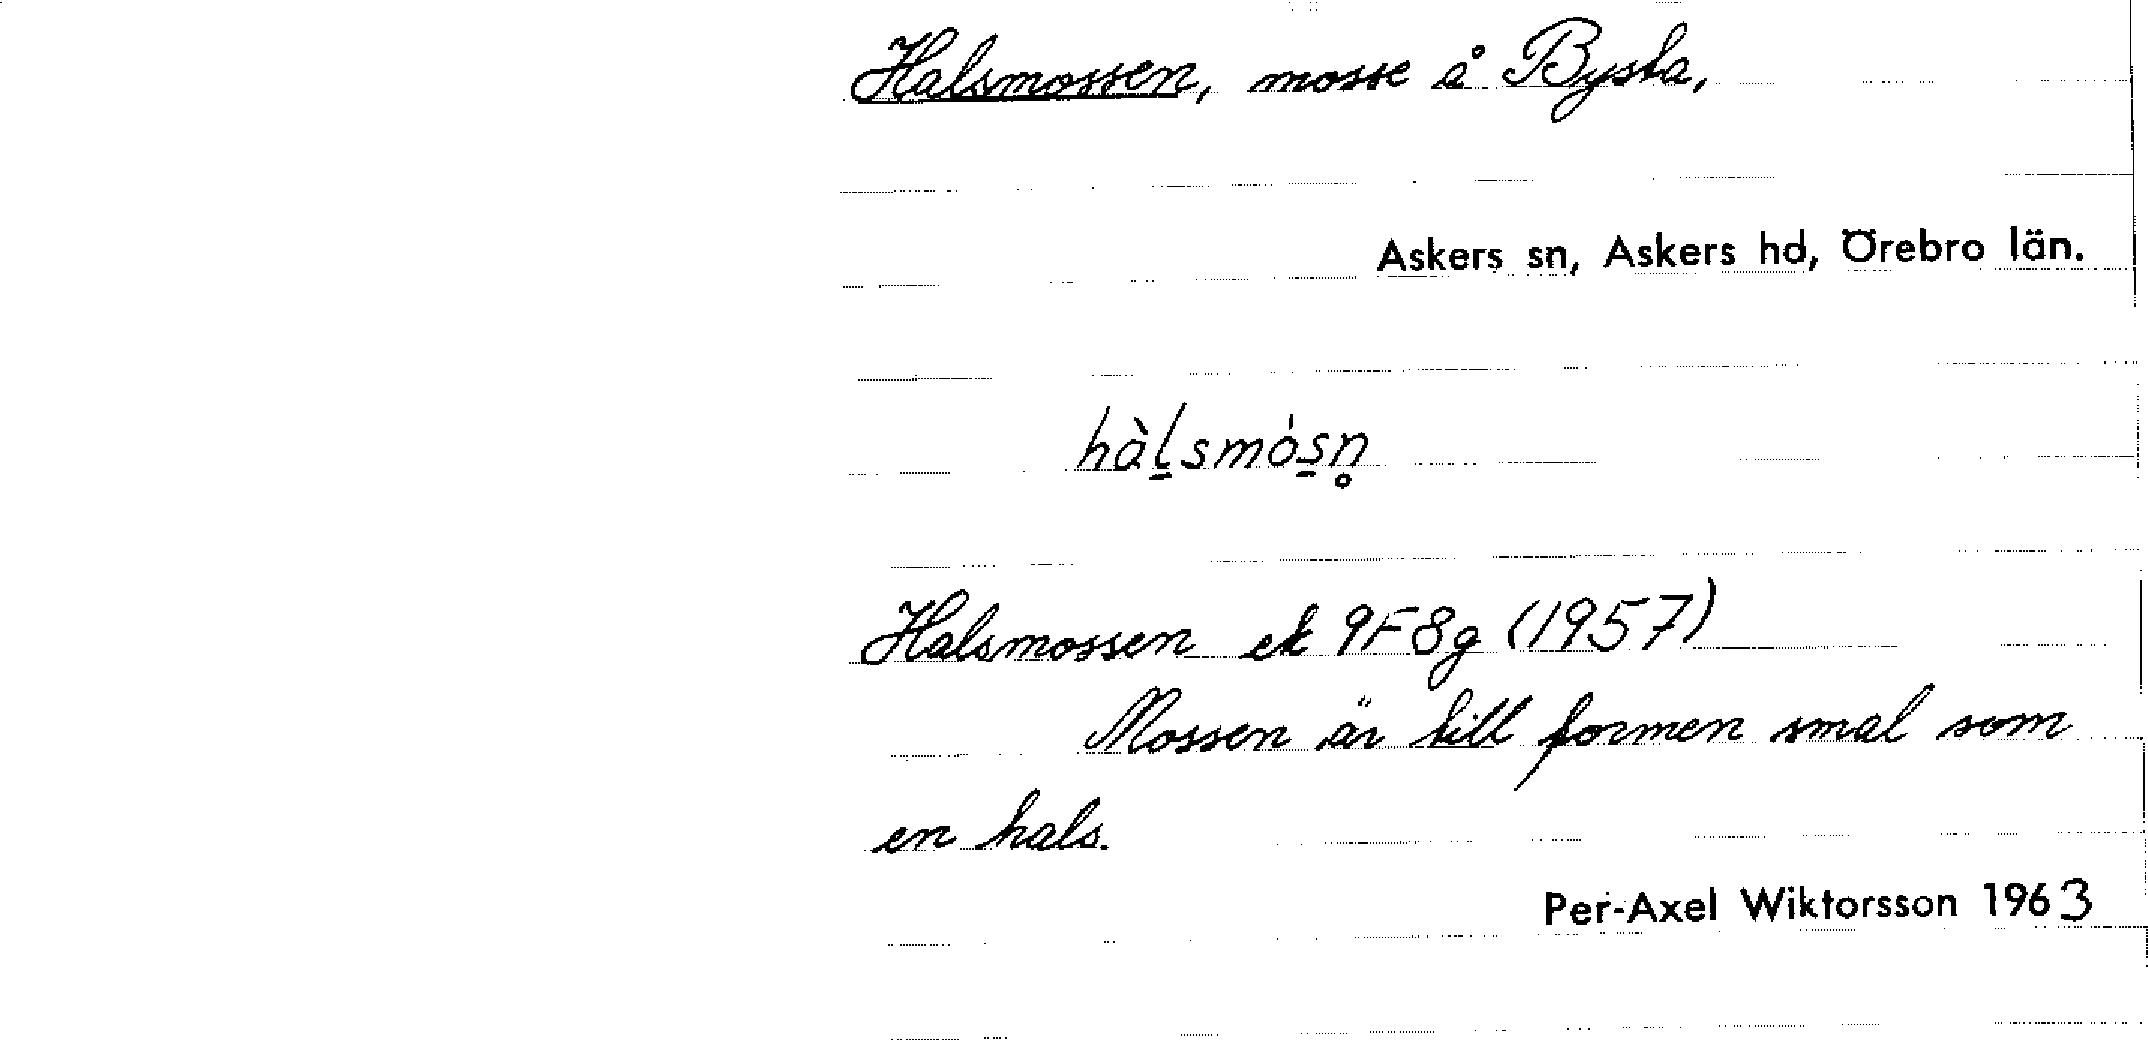 Halsmossen, mosse å Bysta,
Askers sn, Askers hd, Örebro län.
hàl̠smós̠n̥
Halsmossen ek 9F8g (1957)
Mossen är till formen smal som
en hals.
Per-Axel Wiktorsson 1963